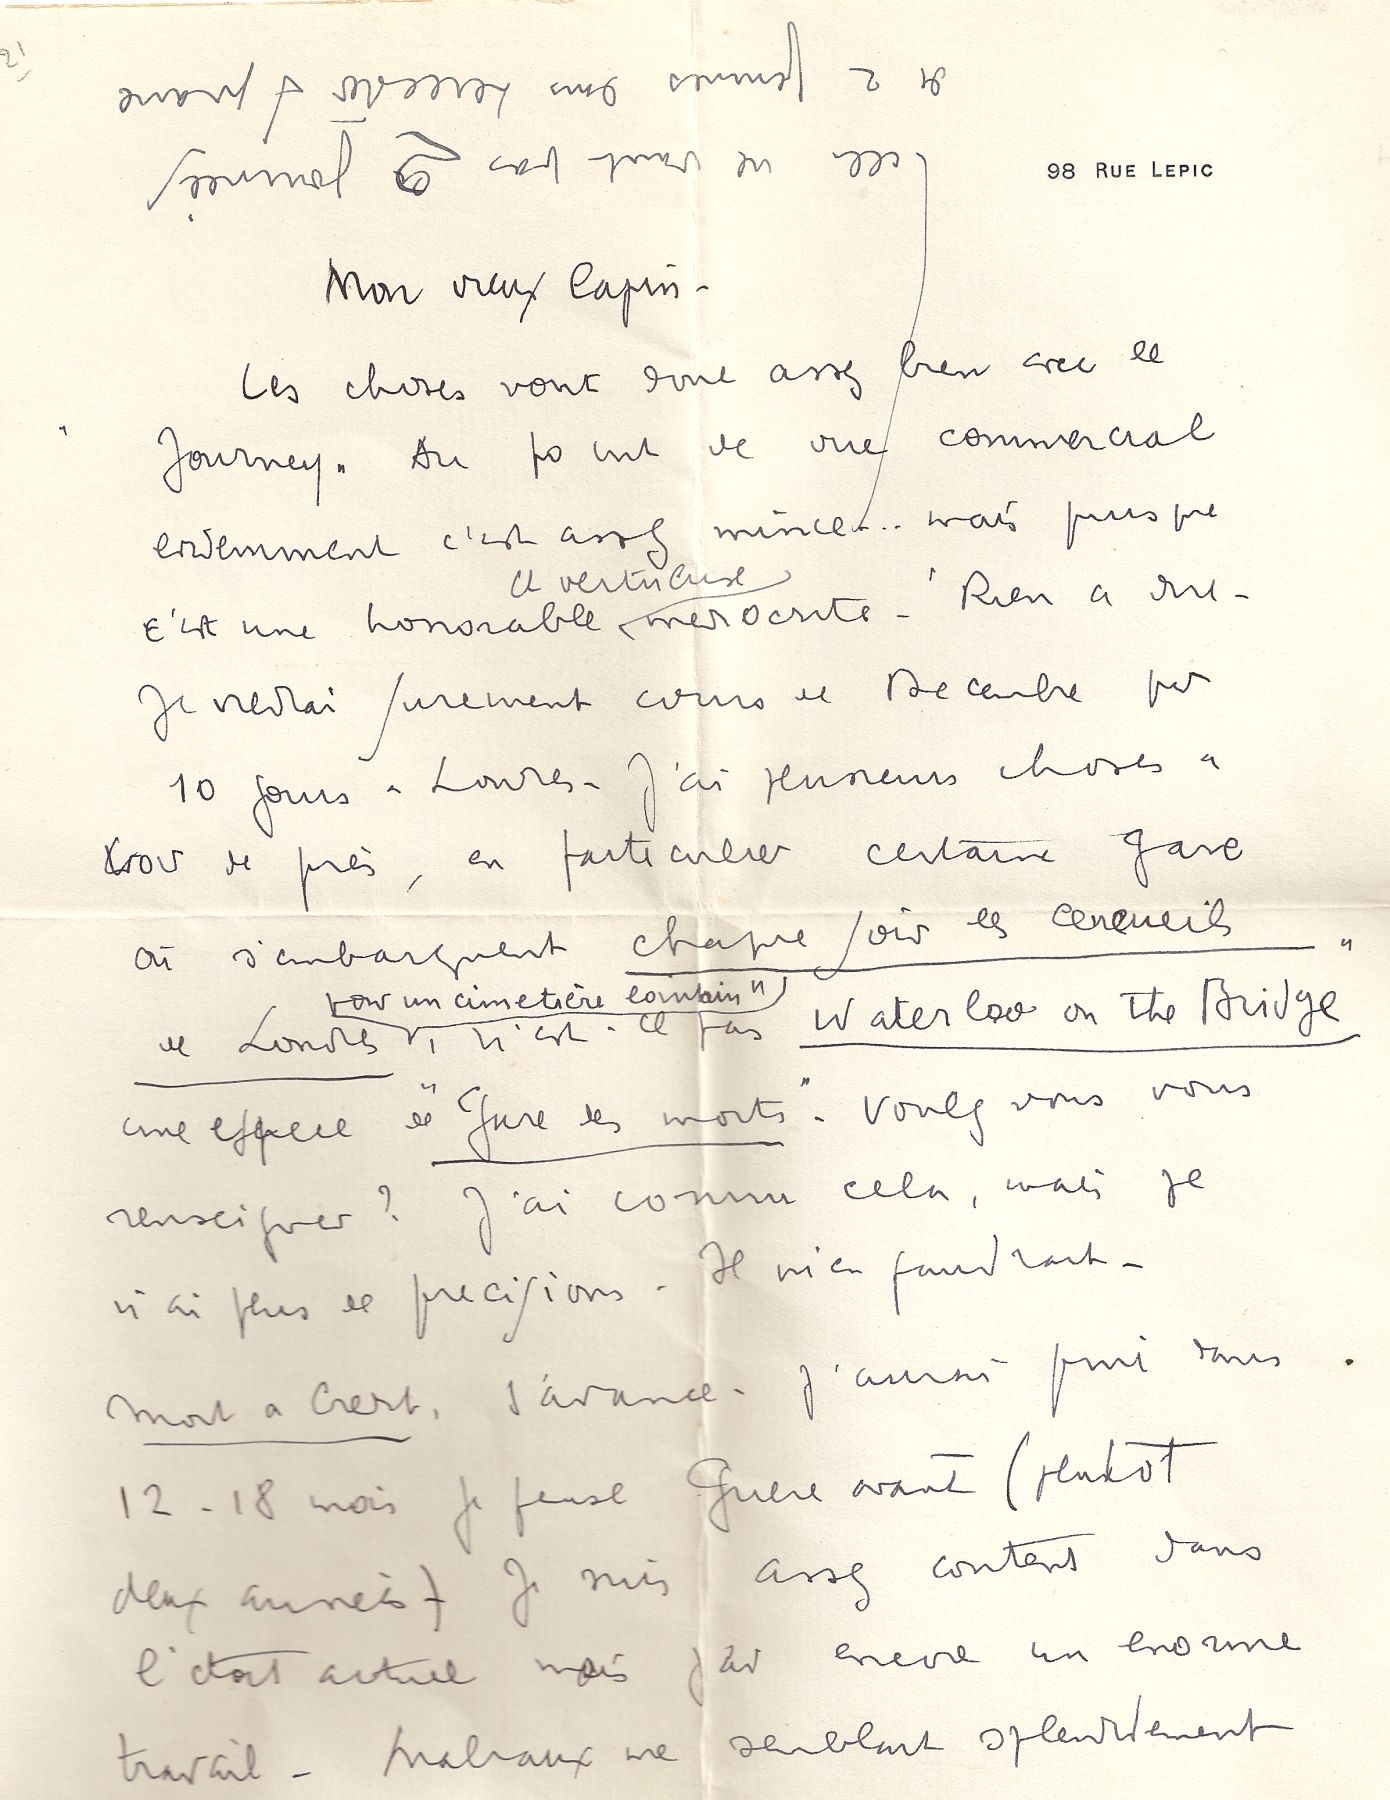 98 RUE LEPIC
Cela ne vaut pas 2 journées
et 2 femmes dans
Mon vieux lapin -
Les choses vont donc assez bien avec le
"Journey". Au point de vue commercial
evidemment c'est assez mince... mais puisque
c'est une honorable et vertueuse mediocrite - Rien a dire -
Je viendrai surement cours de Decembre pr
10 jours a Londres - J'ai plusieurs choses a
voir de près, en particulier certaine gare
où s'embarquent chaque soir les cercueils
de Londres pour un cimetière lointain, n'est-ce pas "Waterloo on the Bridge"
une espece de "Gare des morts". Voulez vous vous
renseigner ? J'ai connu cela, mais je
n'ai plus de precisions. Il m'en faudrait -
Mort a Credit, s'avance. J'aurai fini dans
12-18 mois Je pense Guere avant (plutot
deux années) Je suis assez content dans
l'etat actuel mais j'ai encore un enorme
travail - Malraux me semblait splendidement